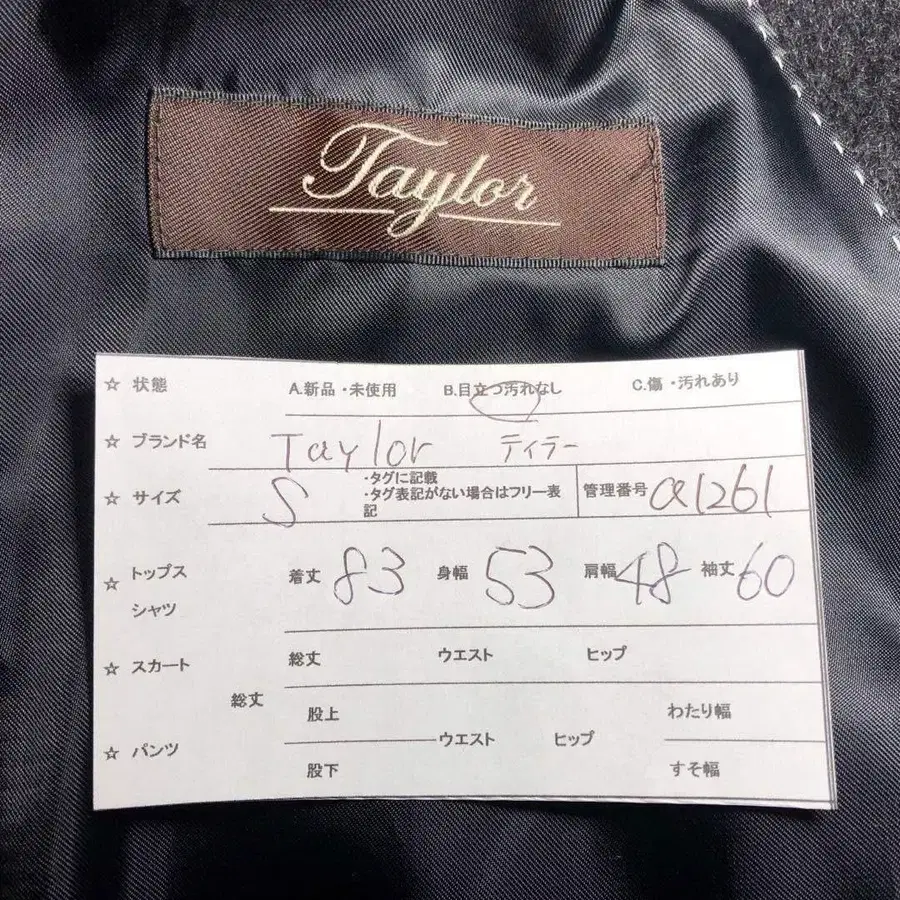 Taylor
☆ 状態 A.新品・未使用 B.目立つ汚れなし C.傷・汚れあり
☆ ブランド名 Taylor ティラー
☆ サイズ S ・タグに記載
・タグ表記がない場合はフリー表
記
管理番号 a1261
☆ トップス
シャツ
着丈 83 身幅 53 肩幅 48 袖丈 60
☆ スカート 総丈 ウエスト ヒップ
☆ パンツ 総丈 股上 ウエスト ヒップ わたり幅
股下 すそ幅